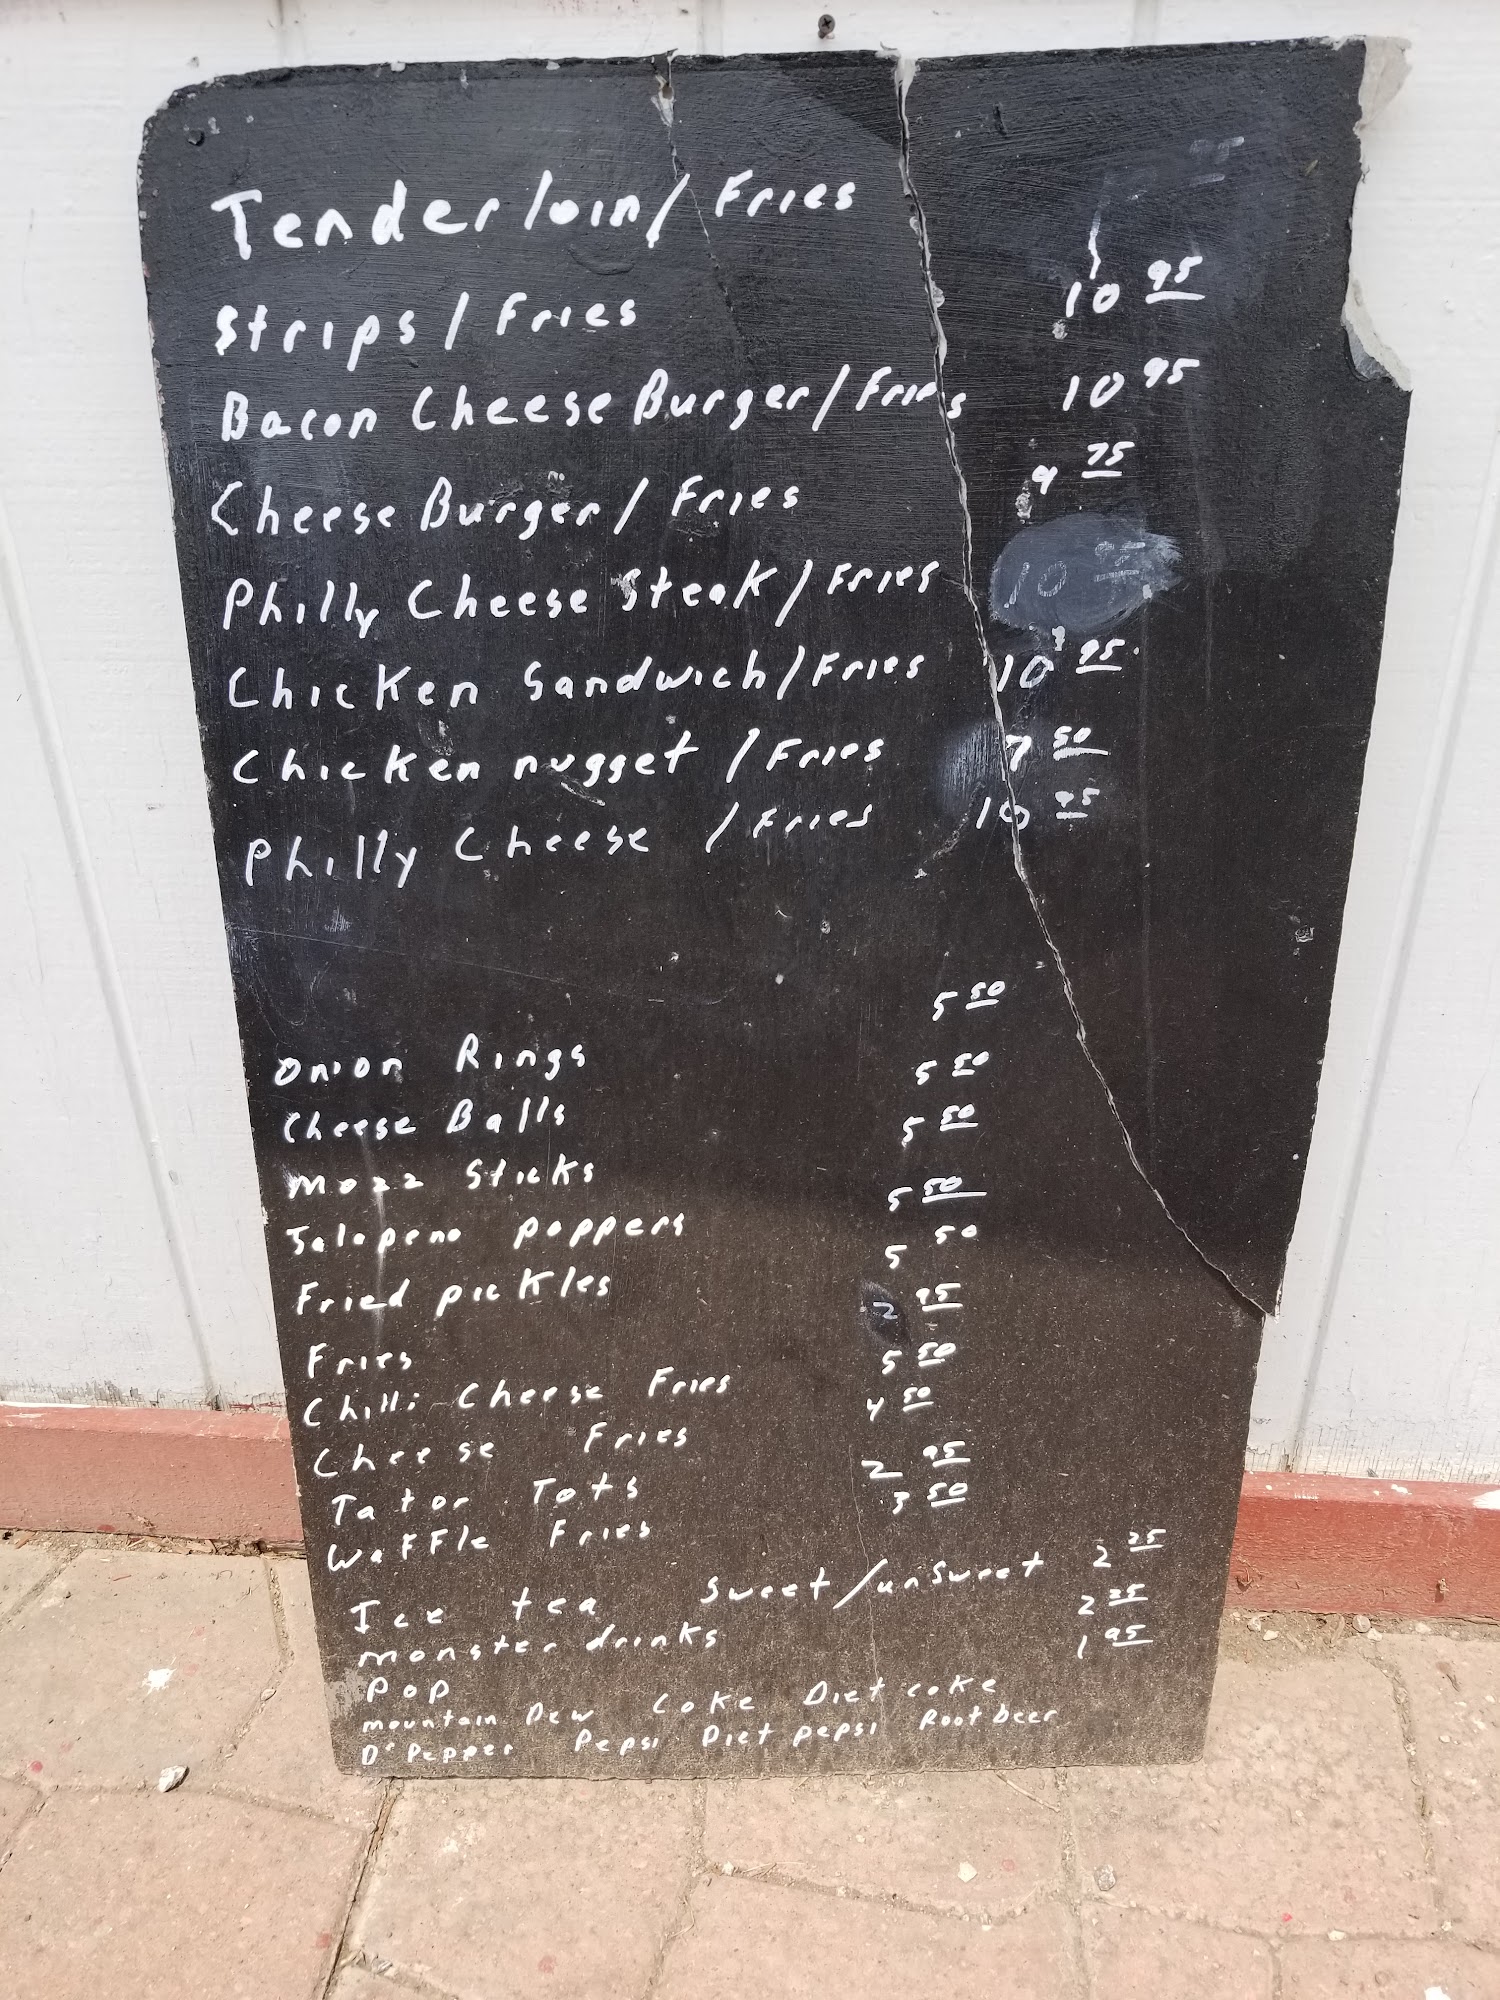 Tenderloin/Fries
Strips/Fries 10 95
Bacon Cheese Burger/Fries 10 95
Cheese Burger/Fries 9 75
Philly Cheese Steak/Fries 10 95
Chicken Sandwich/Fries 10 95
Chicken nugget /Fries 7 50
Philly Cheese /Fries 10 95
Onion Rings 5 50
Cheese Balls 5 50
Mozz Sticks 5 50
Jalapeno poppers 5 50
Fried pickles 5 50
Fries 2 95
Chilli Cheese Fries 5 50
Cheese Fries 4 50
Tator Tots 2 95
Waffle Fries 3 50
Ice tea Sweet/unSweet 2 25
monster drinks 2 25
Pop 1 95
mountain Dew Coke Diet coke
Dr Pepper Pepsi Diet pepsi Root beer